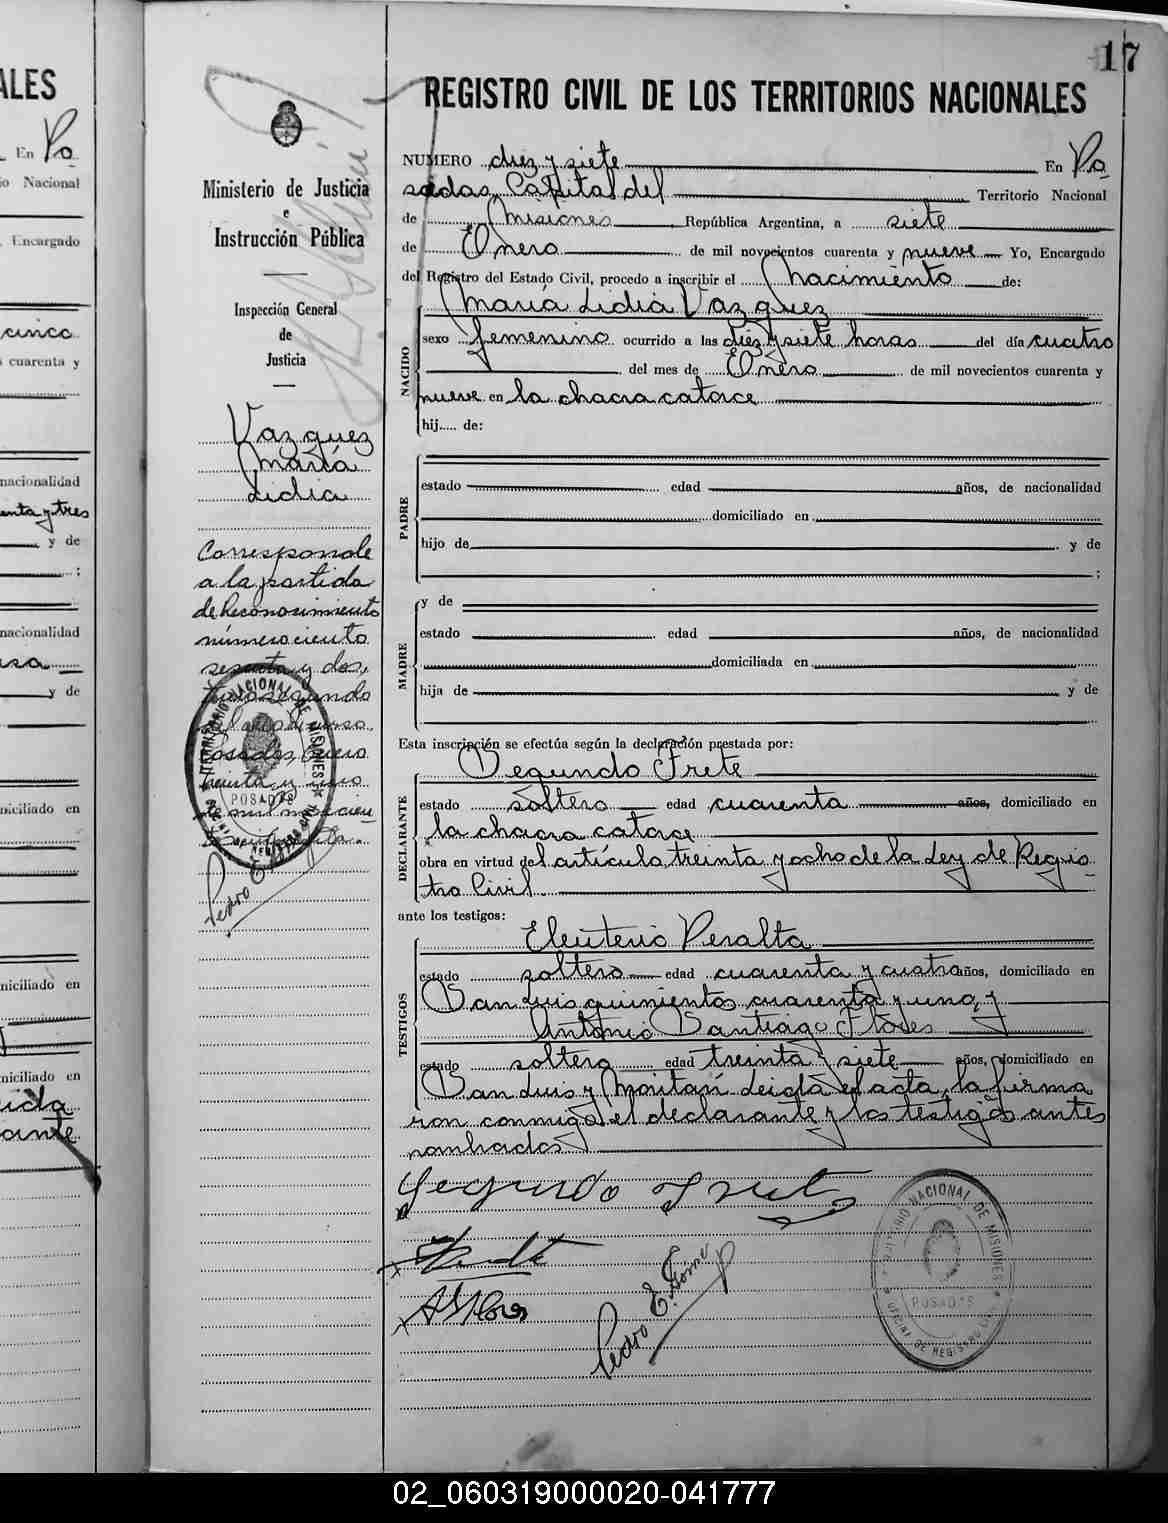 17
REGISTRO CIVIL DE LOS TERRITORIOS NACIONALES
Ministerio de Justicia
e
Instrucción Pública
Inspección General
de
Justicia
Vazquez
María
Lidia
Corresponde
a la partida
de Reconocimiento
número ciento
sesenta y dos,
Pedro E.
NUMERO diez y siete En Po
sadas, Capital del Territorio Nacional
de Misiones, República Argentina, a siete
de Enero de mil novecientos cuarenta y nueve Yo, Encargado
del Registro del Estado Civil, procedo a inscribir el Nacimiento de:
María Lidia Vazquez
NACIDO
sexo femenino ocurrido a las diez y siete horas del día cuatro
del mes de Enero de mil novecientos cuarenta y
nueve en la chacra catorce
hij..... de:
PADRE
estado edad años, de nacionalidad
domiciliado en
hijo de y de
;
MADRE
y de
estado edad años, de nacionalidad
domiciliada en
hija de y de
Esta inscripción se efectúa según la declaración prestada por:
DECLARANTE
Segundo Frete
estado soltero edad cuarenta años, domiciliado en
la chacra catorce
obra en virtud del artículo treinta y ocho de la Ley de Regis
tro Civil
ante los testigos:
TESTIGOS
Eleuterio Peralta
estado soltero edad cuarenta y cuatro años, domiciliado en
San Luis quinientos cuarenta y uno, y
Antonio Santiago Flores
estado soltero edad treinta y siete años, domiciliado en
San Luis y Moritan Leida el acta, la firma
ron conmigo el declarante y los testigos antes
nombrados
Segundo Frete
A S Flores
Pedro E. Gomez
TERRITORIO NACIONAL DE MISIONES
POSADAS
OFICINA DE REGISTRO CIVIL
02_060319000020-041777